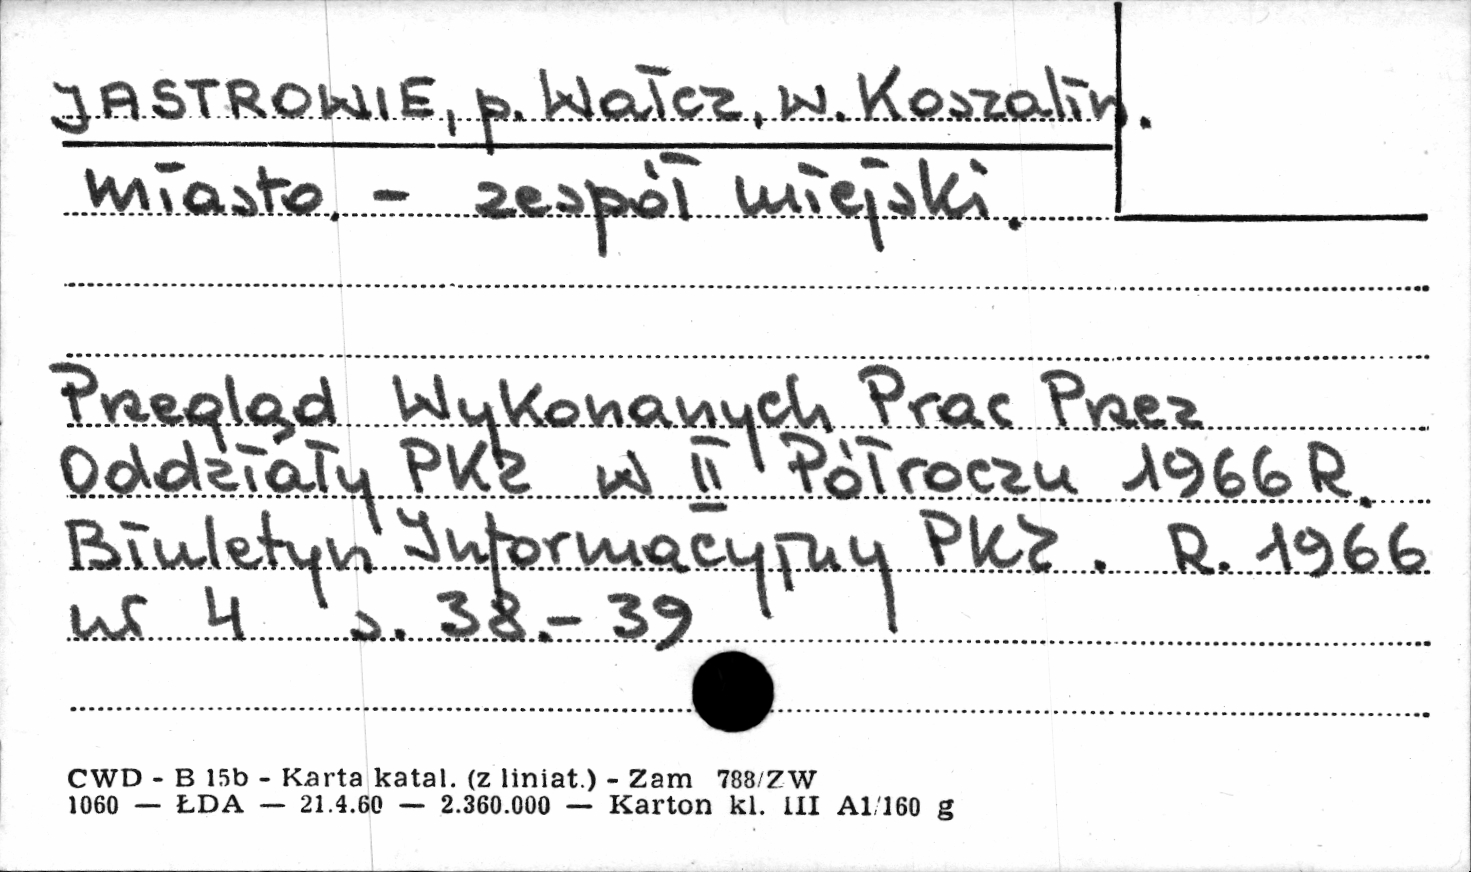 JASTROWIE, p. Wałcz, w. Koszalin.
miasto. - zespół miejski.
Przegląd Wykonanych Prac Przez
Oddziały PKZ w II Półroczu 1966 R.
Biuletyn Informacyjny PKZ. R. 1966
nr 4 s. 38.- 39
CWD - B 15b - Karta katal. (z liniat.) - Zam 788/ZW
1060 — ŁDA — 21.4.60 — 2.360.000 — Karton kl. III A1/160 g